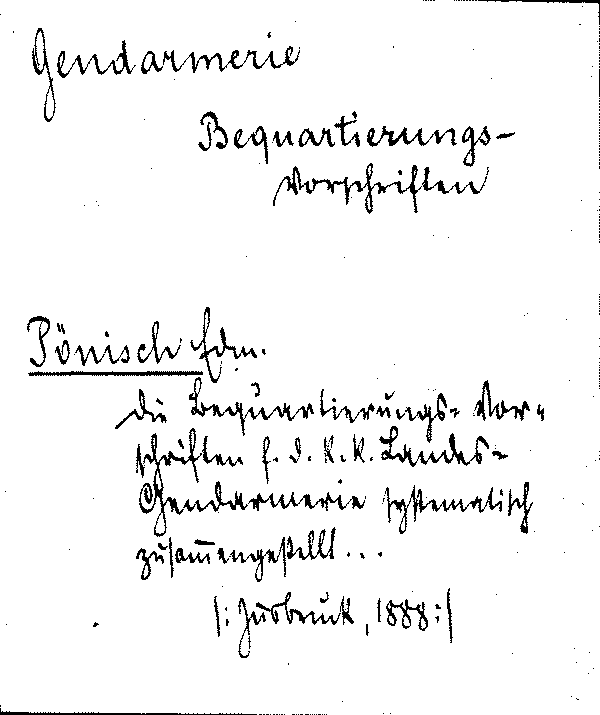 Gendarmerie
Bequartierungs-
Vorschriften
Pönisch Edm.
Die Bequartierungs- Vor-
schriften f. d. k. k. Landes-
Gendarmerie systematisch
zusam̅engestellt...
/: Insbruck, 1888:/